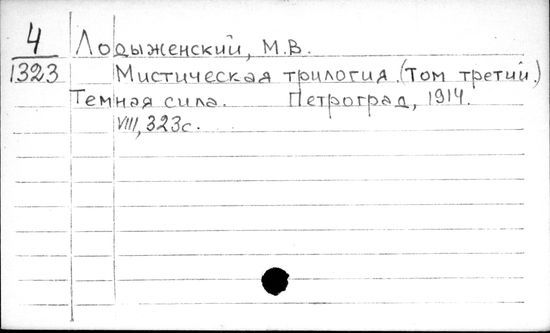 4 Лодыженский, М.В.
1323 Мистическая трилогия. (Том третий.)
Темная сила. Петроград, 1914.
VIII, 323с.